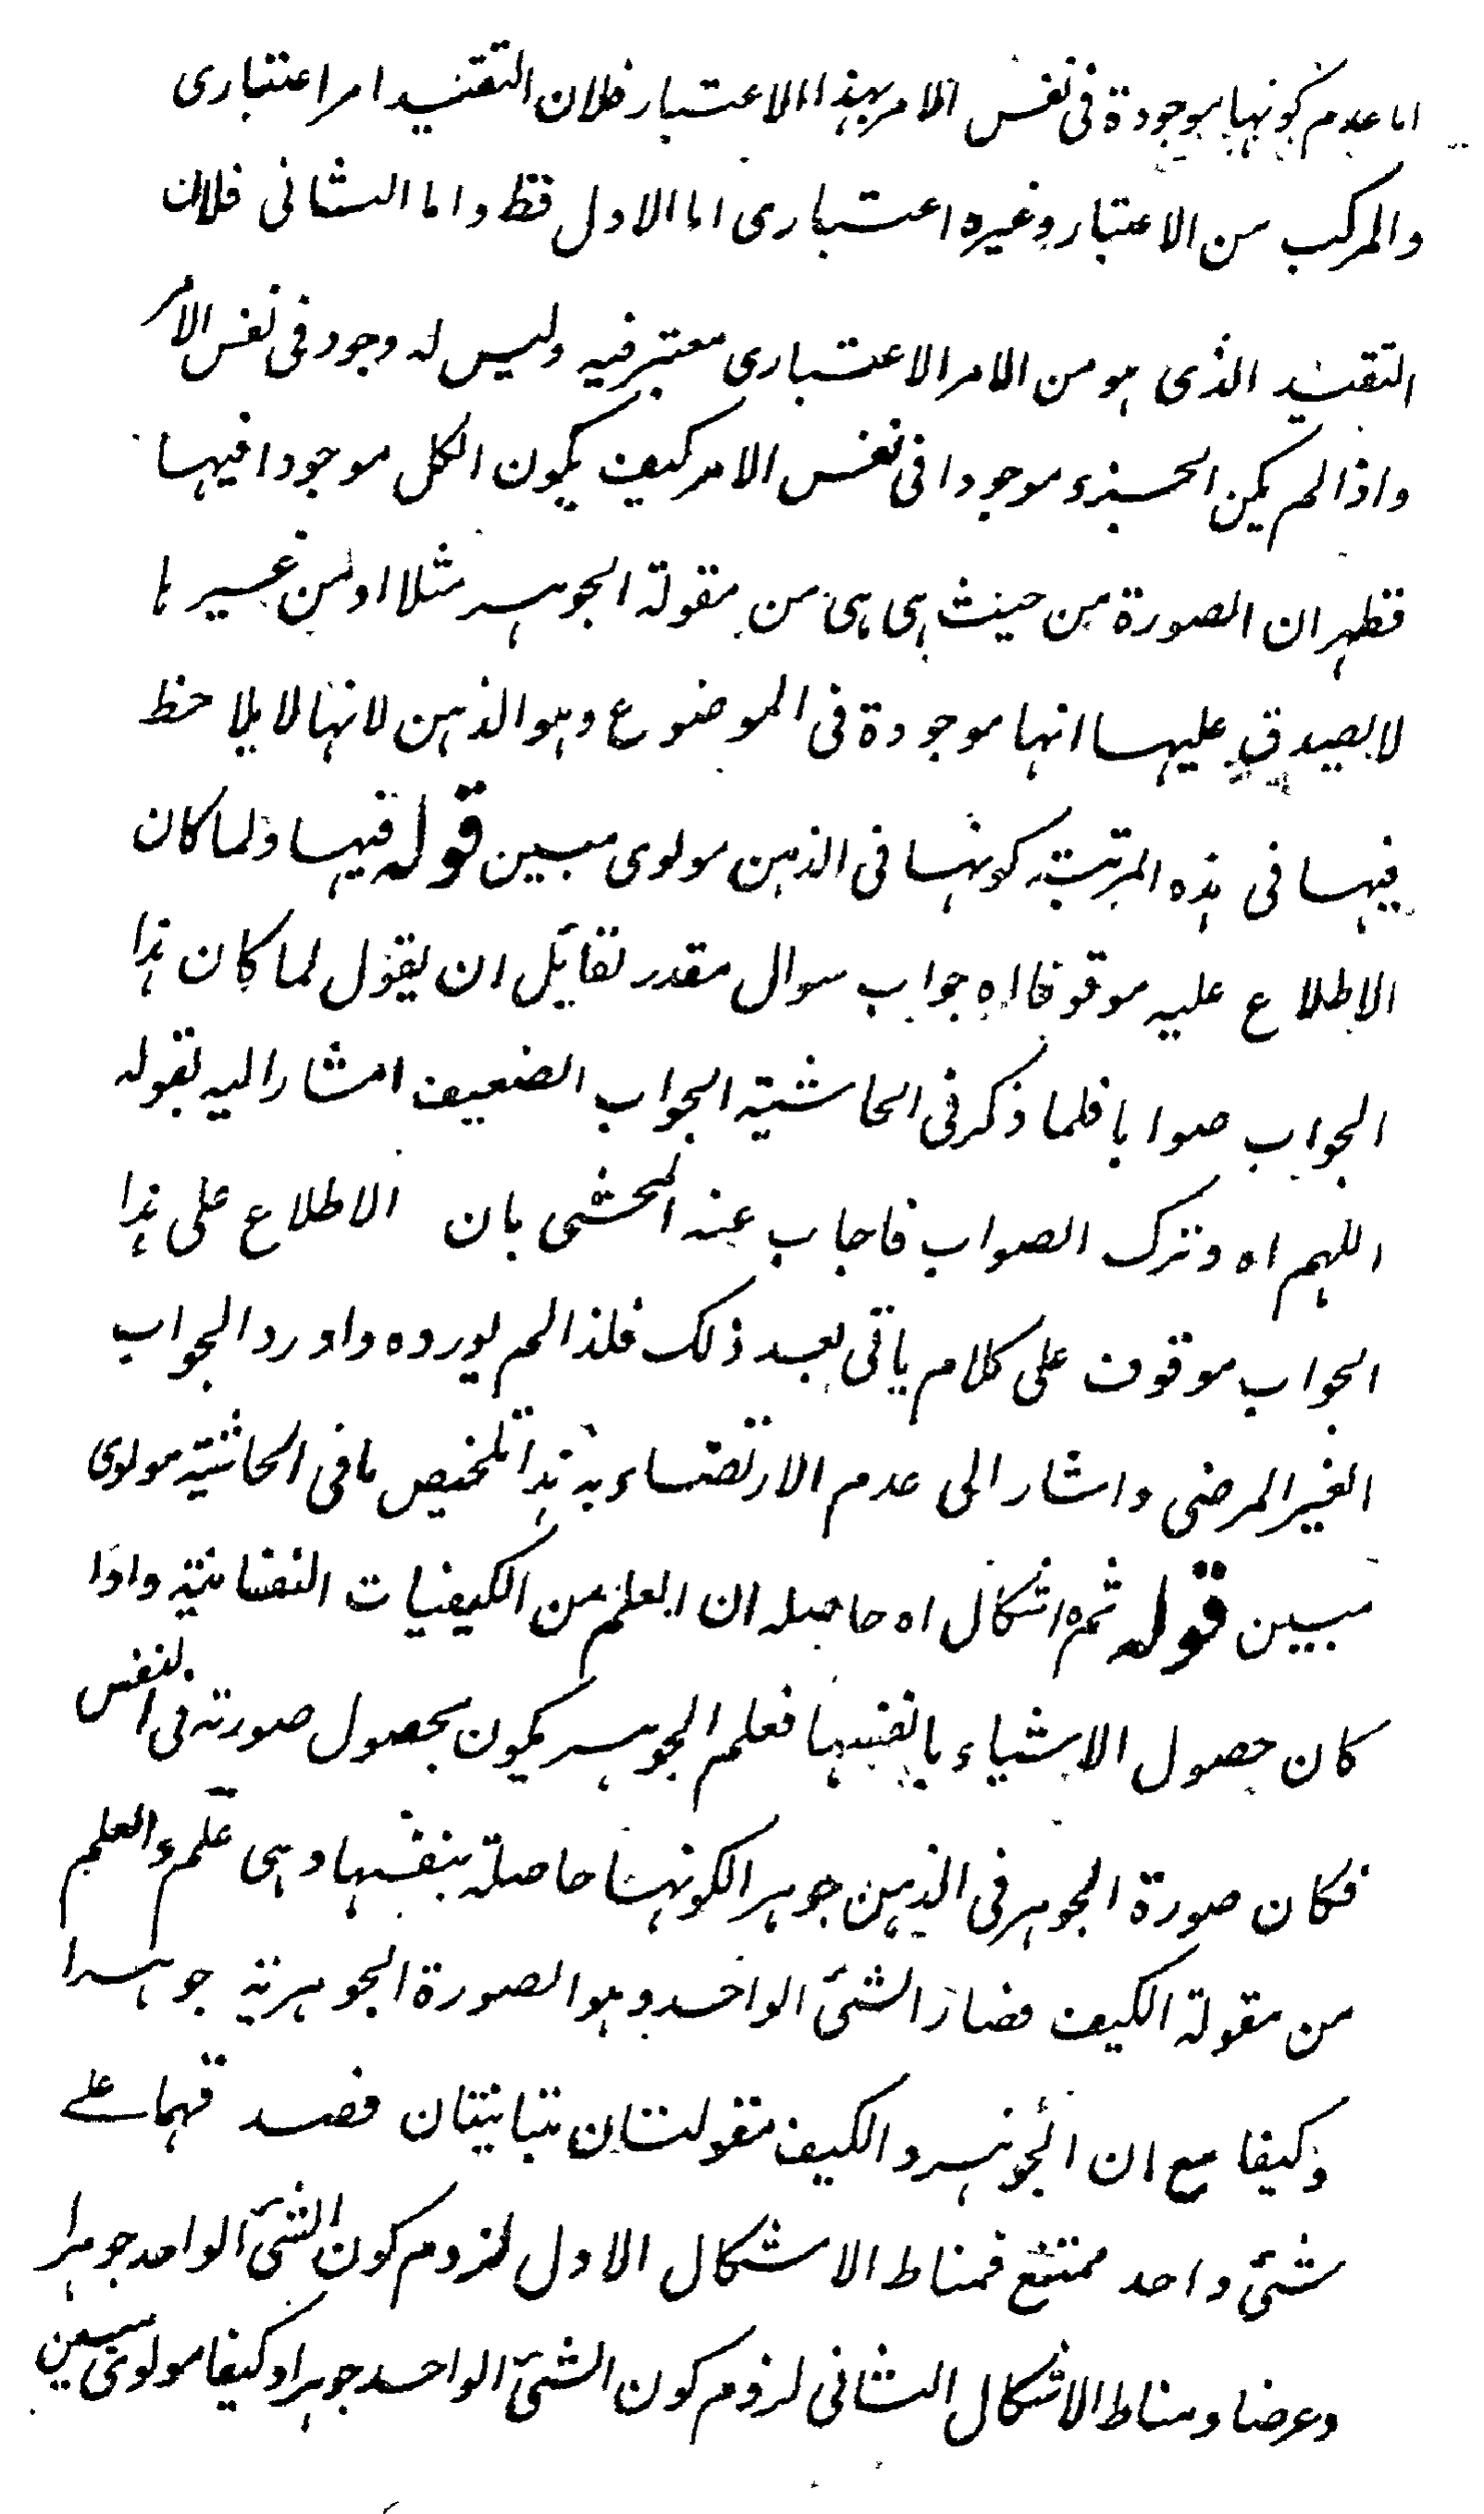 اما عدم كونها موجودة فى نفس الامر بهذا الاعتبار فلان التقئيد امر اعتبارى
والمركب من الاعتبار وغيره اعتبارى اما الاول فظ واما الثانى فلان
التقئيد الذى هو من الامر الاعتبارى معتبر فيه وليس له وجود فى نفس الامر
واذا لم يكن الجزء موجودا فى نفس الامر كيف يكون الكل موجودا فيها
فظهر ان الصورة من حيث هى هى من مقولة الجوهر مثلا او من غيرها
لا يصدق عليها انها موجودة فى الموضوع وهو الذهن لانها لا يلاحظ
فيها فى هذه المرتبة كونها فى الذهن مولوى مبين قوله فيها ولما كان
الاطلاع عليه موقوفا اه جواب سوال مقدر لقايل ان يقول لما كان هذا
الجواب صوابا فلما ذكر فى الحاشية الجواب الضعيف المشار اليه بقوله
اللهم اه وترك الصواب فاجاب عنه المحشى بان الاطلاع على هذا
الجواب موقوف على كلام ياتى بعد ذلك فلذا لم يورده واورد الجواب
الغير المرضى واشار الى عدم الارتضاء به هذا تلخيص ما فى الحاشية مولوى
مبين قوله ثمه اشكال اه حاصله ان العلم من الكيفيات النفسانية واذا
كان حصول الاشياء بانفسها فعلم الجوهر يكون بحصول صورته فى النفس
فكان صورة الجوهر فى الذهن جوهرا لكونها حاصلة بنفسها وهى علم والعلم
من مقولة الكيف فصار الشئ الواحد وهو الصورة الجوهرية جوهرا
وكيفا مع ان الجوهر والكيف مقولتان متباينتان فصدقهما على
شئ واحد ممتنع فمناط الاشكال الاول لزوم كون الشئ الواحد جوهرا
وعرضا ومناط الاشكال الثانى لزوم كون الشئ الواحد جوهرا وكيفا مولوى مبين